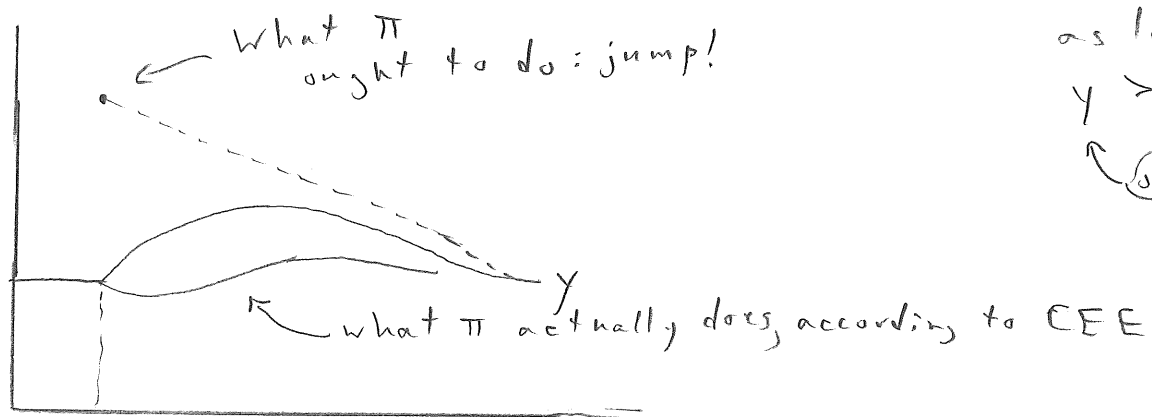 what π
ought to do: jump!
as
y >
y
what π actually does, according to CEE